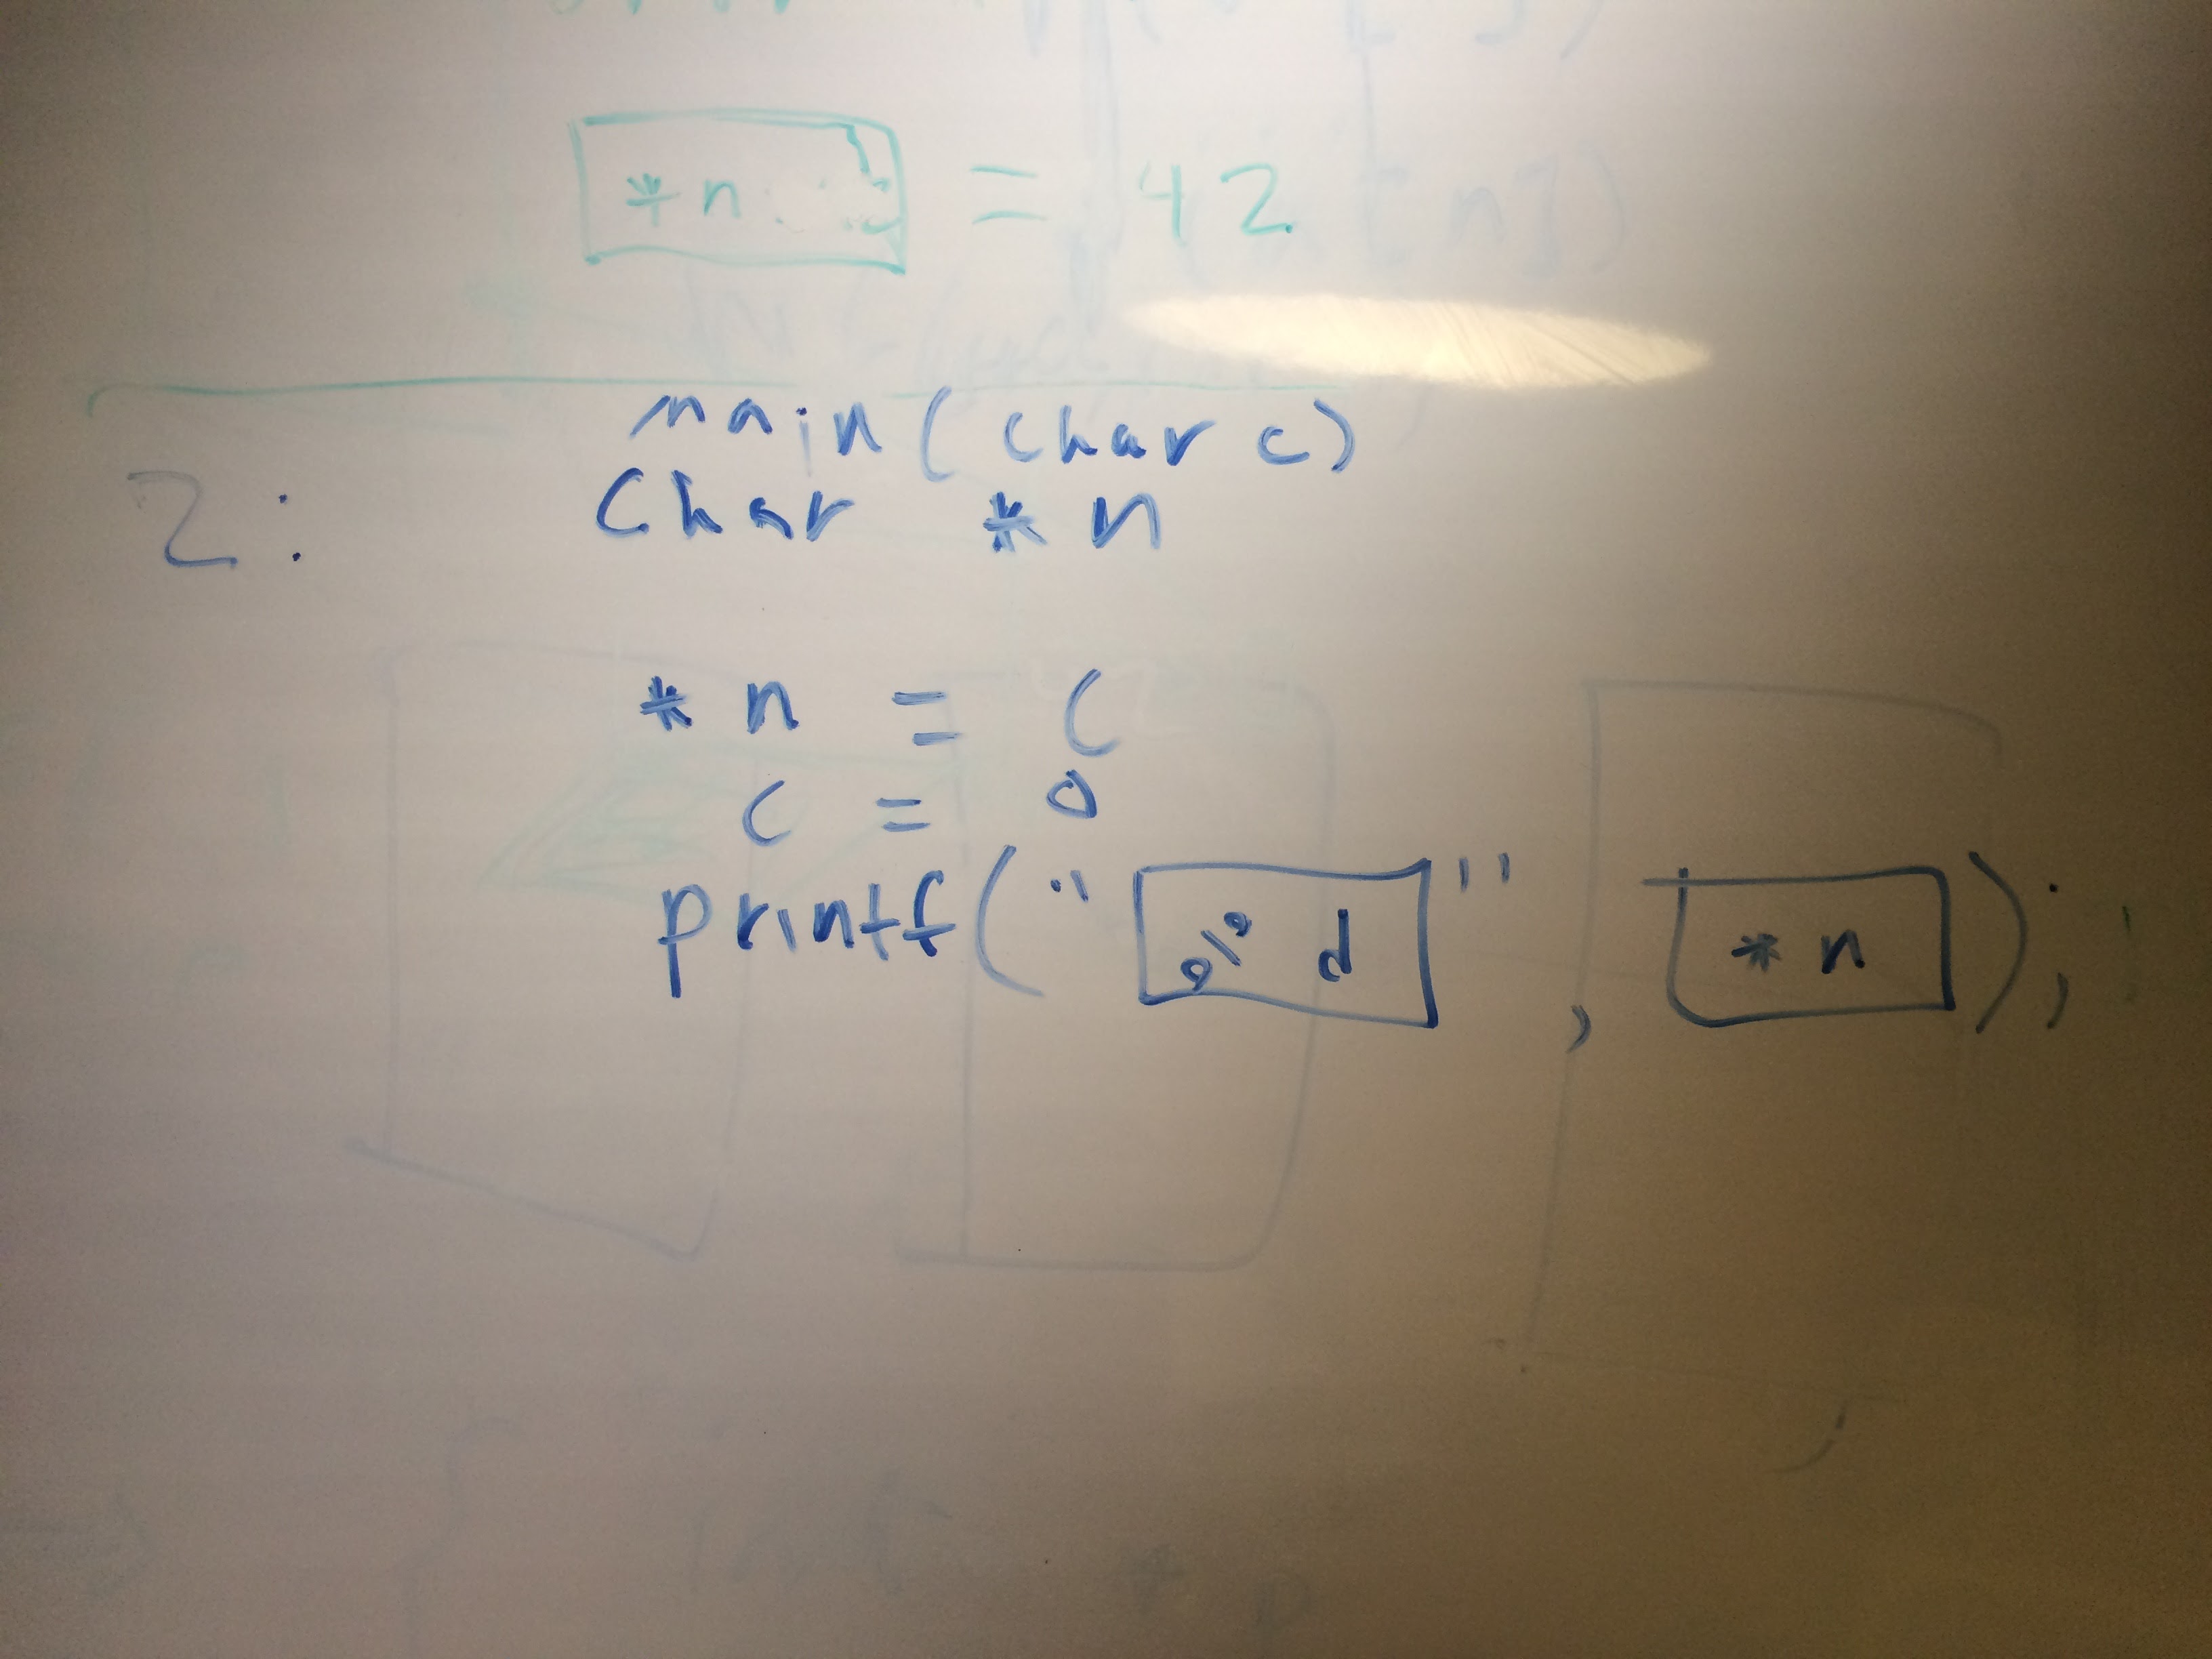 *n = 42
main(char c)
2: Char *n
*n = c
c = 0
printf("%d", *n);